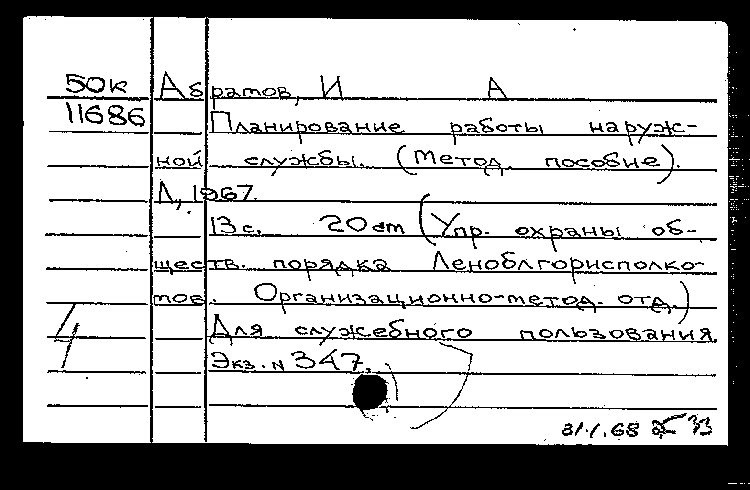 50к Абрамов, И А
11686 Планирование работы наруж-
ной службы. (Метод. пособие).
Л, 1967.
13 с. 20 cm (Упр. охраны об-
ществ. порядка Леноблгорисполко-
мов. Организационно-метод. отд.)
4 Для служебного пользования.
Экз. N 347.
31.1.68